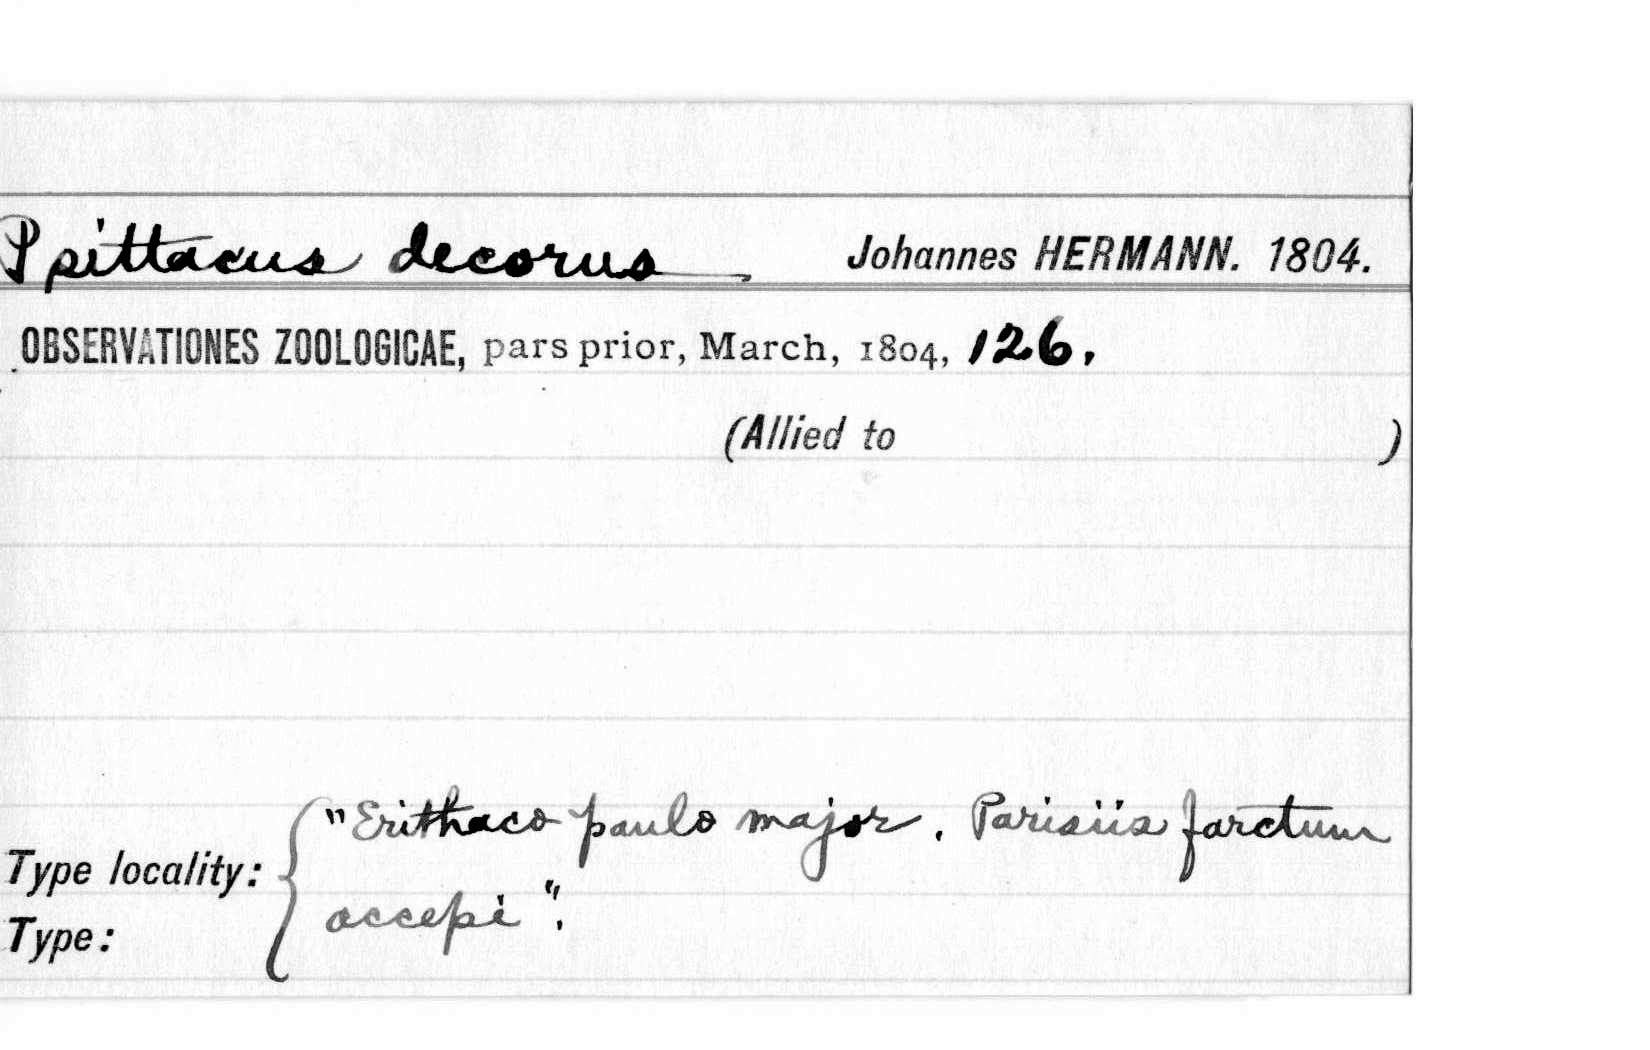 Psittacus decorus Johannes HERMANN. 1804.
OBSERVATIONES ZOOLOGICAE, pars prior, March, 1804, 126.
(Allied to )
"Erithaco paulo major. Parisiis farctum
Type locality:
accepi".
Type: